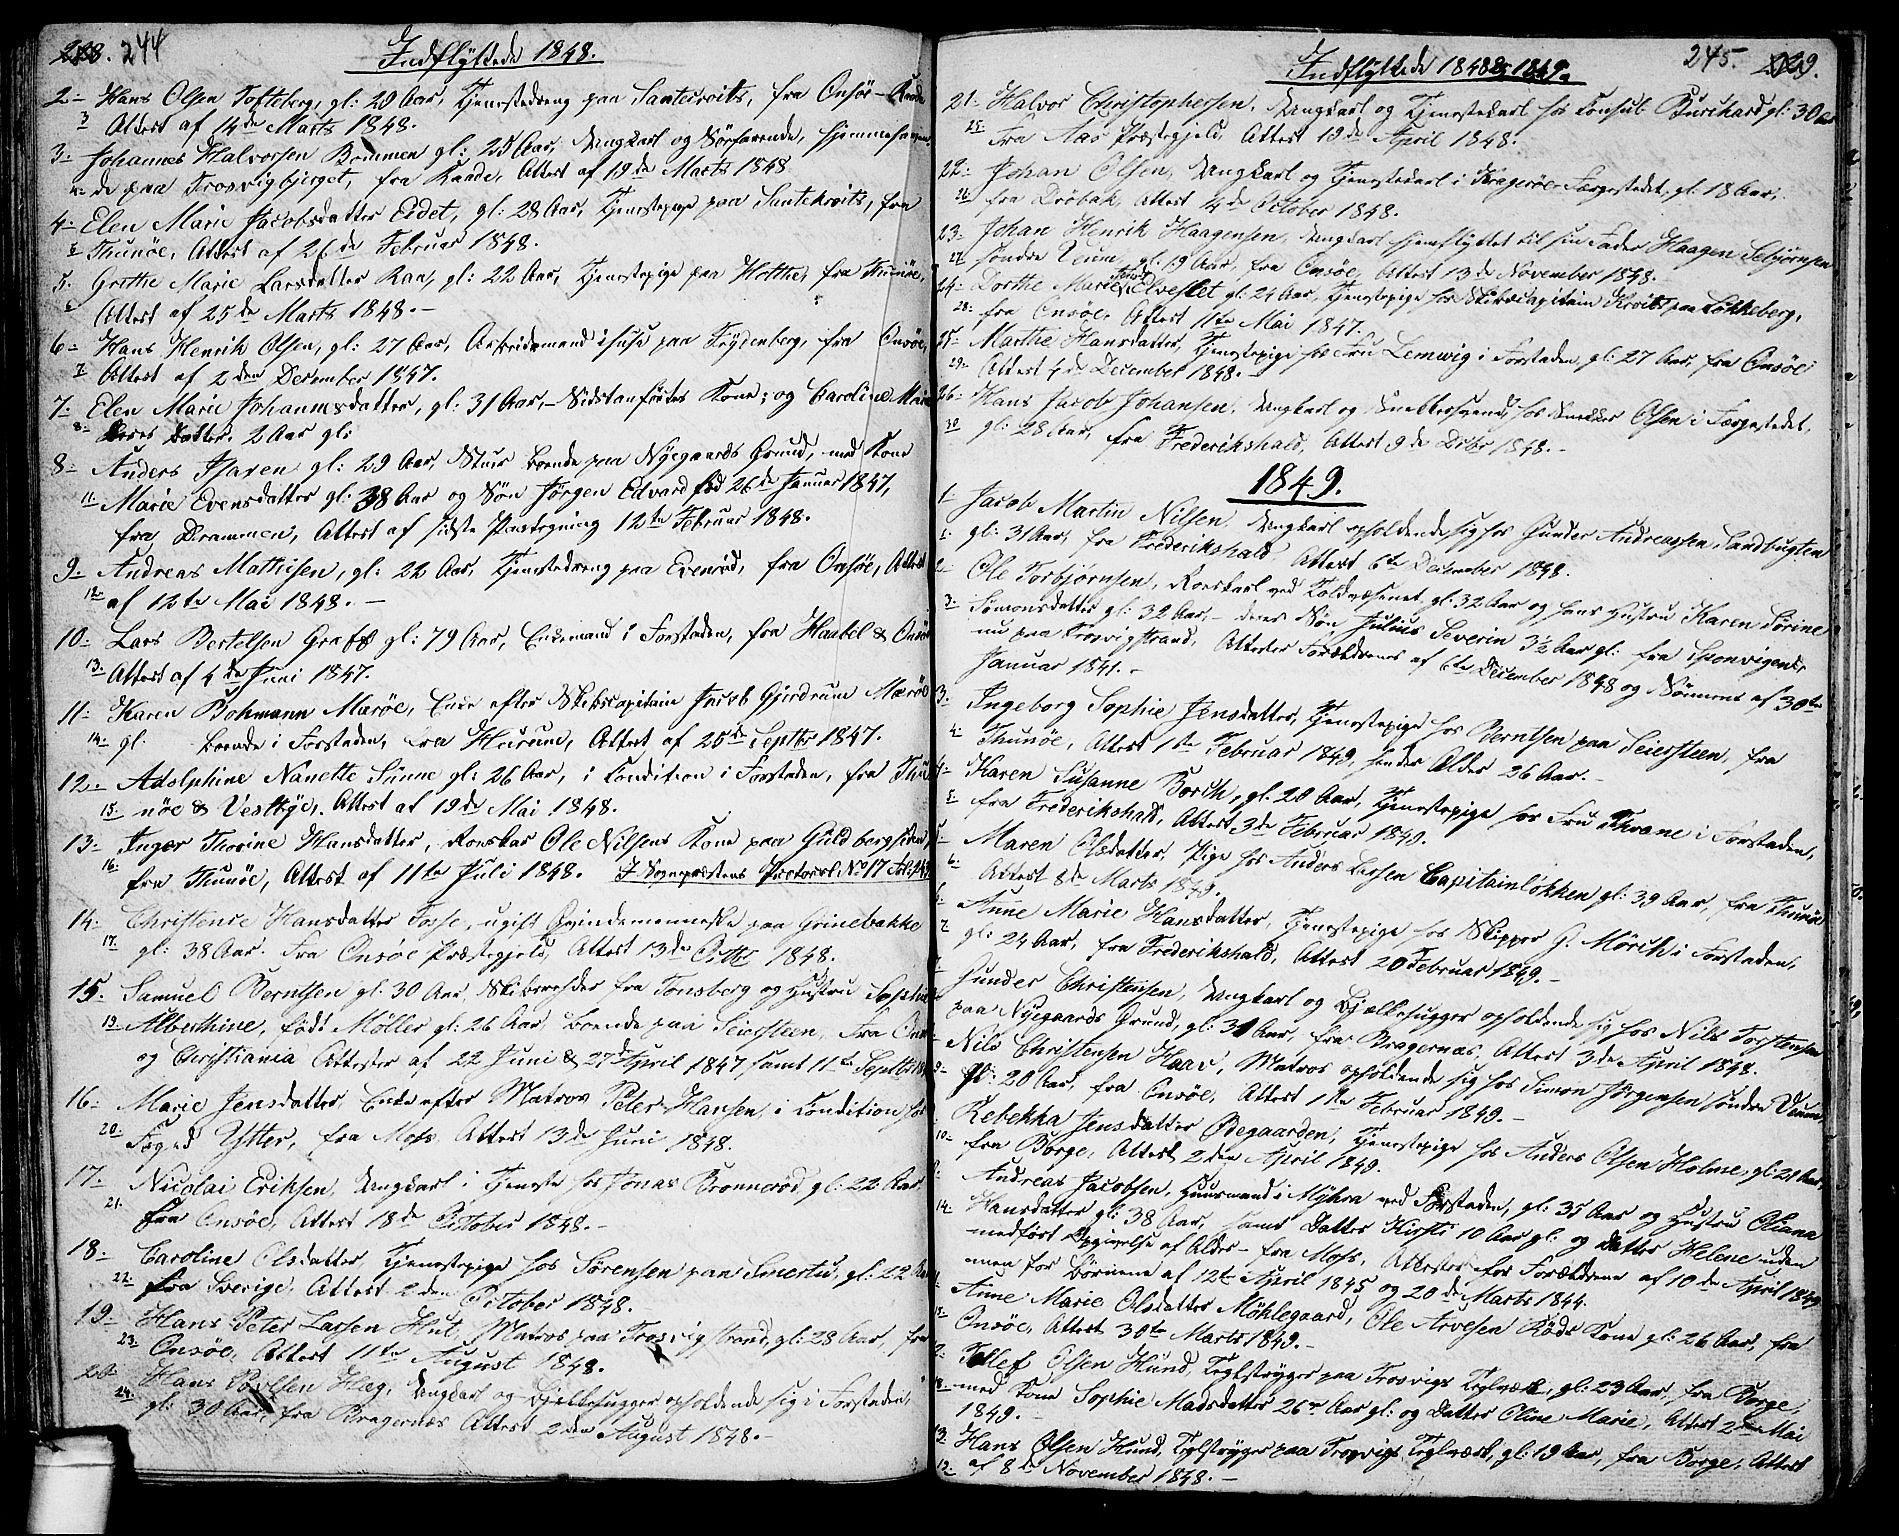 228. 244
Indflyttede 1848.
2. Hans Olsen Tofteberg, gl: 20 Aar, Tjenestedreng paa fra Onsöe
3 Attest af 14de Marts 1848.
3. Johannes Halvorsen Bommen gl: 25 Aar, Ungkarl og Söefarende, hjemmehaven-
4. de paa Trosvigbjerget, fra Raade, Attest af 19de Marts 1848
4. Elen Marie Jacobsdatter Eidet, gl: 28 Aar, Tjenestepige paa fra
5 Thunöe, Attest af 26de Februar 1848.
5. Grethe Marie Larsdatter Raa, gl: 22 Aar, Tjenestepige paa Holthe, fra Thunöe,
6 Attest af 25de Marts 1848.-
6. Hans Henrik Olsen, gl: 27 Aar, Arbeidsmand i huse paa Frydenberg, fra Onsöe,
7. Attest af 2den December 1847.
7. Elen Marie Johannesdatter, gl: 31 Aar,- Sidstanförtes Kone; og Caroline Marie
8. deres Datter, 2 Aar gl:
8. Anders gl: 29 Aar, boende paa Nyegaards Grund, med Kone
11. Marie Evensdatter gl: 38 Aar og Sön Jörgen Edvard fød 26de Januar 1847,
fra Drammen, Attest af sidste Paategning 12te Februar 1848.
9. Andreas Mathisen, gl: 22 Aar, Tjenestedreng paa Evenröd, fra Onsöe, Attest
12. af 12te Mai 1848.-
10. Lars Bertelsen gl: 79 Aar, Enkemand i Forstaden, fra Haabel & Onsöe
13. Attest af 4de Juni 1847.
11. Karen Bohmann Maröe, Enke efter Skibscapitain Jacob Gjerdrum Maröe
14. gl. boende i Forstaden, fra Hurum, Attest af 20de Septbr 1847.
12. Adolphine Nanette Sünne gl: 26 Aar, i Condition i Forstaden, fra Thu-
15. nöe & Vestbye, Attest af 19de Mai 1848.
13. Inger Thorine Hansdatter, Ole Nilsens Kone paa Guldbergsiden,
16. fra Thunöe, Attest af 11te Juli 1848. I Sognepræstens Protocol No 17
14. Christence Hansdatter ugift Qvindemenneske paa Grinebakke
17. gl: 38 Aar. Fra Onsöe Præstegjeld, Attest 13de Octbr 1848.
15. Samuel Berntsen gl: 30 Aar, fra Tonsberg og Hustru Sophie
19. Alberthine, født Möller gl: 26 Aar, boende paa Seiersteen, Fra Onsöe
og Christiania Attester af 22 Juni & 27de April 1847, samt 11te Septbr
16. Marie Jensdatter, Enke efter Matros Peter Hansen, i Condition hos
20. Foged Ytter, fra Moss Attest 13de Juni 1848.
17. Nicolai Eriksen, Ungkarl i Tjeneste hos Jonas Bronneröd gl: 22 Aar
21. fra Onsöe, Attest 18de October 1848.-
18. Caroline Olsdatter, Tjenestepige hos Sörensen paa gl: 22 Aar
22. fra Sverige, Attest 2den October 1848.
19. Hans Peter Larsen Hut, Matros paa Trosvigstrand, gl: 28 Aar, fra
23. Onsöe, Attest 11te August 1848.
20. Hans Poulsen Hæg, Ungkarl og Bjelkehugger opholdende sig i Forstaden,
24. gl: 30 Aar, fra Bragernæs Attest 2den August 1848.-
Indflyttede 1848 & 1849.
245. 229.
21. Halvor Christophersen, Ungkarl og Tjenestekarl hos Consul Burchard gl: 30 Aar
25. Fra Aas Præstegjeld, Attest 19de April 1848.
22. Johan Olsen, Ungkarl og Tjenestekarl i Kragerøe Færgestedet, gl: 18 Aar,
26. fra Dröbak, Attest 4de October 1848.
23. Johan Henrik Haagensen, Ungkarl hjemflyttet til sin Fader Haagen
27. söndre Veum, gl: 19 Aar, fra Onsöe, Attest 13de November 1848.
24. Dorthe Marie Elvestet gl: 24 Aar, Tjenestepige hos Skibscapitain paa Løkkeberg,
28. fra Onsöe, Attest 11te Mai 1847.
25. Marthe Hansdatter, Tjenestepige hos Fru Lemwig i Forstaden, gl: 27 Aar, fra Onsöe
29. Attest 4de December 1848.-
26. Hans Jacob Johansen, Ungkarl og Snekkersvend hos Snekker Olsen i Færgestedet,
30 gl: 28 Aar, fra Frederikshald, Attest 9de Decbr 1848.-
1849.
1. Jacob Martin Nilsen, Ungkarl opholdende sig hos Gunder Andreassen Sandbugten
1. gl: 31 Aar, fra Frederikshald Attest 6te December 1848.
2. Ole Torbjørnsen, Roerskarl ved Toldvæsenet, gl: 32 Aar og hans Hustru Karen Sörine
3. Simonsdatter gl: 32 Aar,- deres Sön Julius Severin 3½ Aar gl: fra Sponvigen &
nu paa Trosvigstrand, Attester Forældrenes af 6te December 1848 og Sönnens af 30te
Januar 1841.-
3. Ingeborg Sophie Jensdatter, Tjenestepige hos Berntsen paa Seiersteen, fra
4. Thunöe, Attest 1ste Februar 1849, hendes Alder 26 Aar.-
4. Karen Susanne Borch, gl. 20 Aar, Tjenestepige hos Fru Thrane i Forstaden,
5. fra Frederikshald, Attest 3de Februar 1849.
5. Maren Olsdatter, Pige hos Anders Larsen Capitainløkken gl: 39 Aar, fra Thunöe
6. Attest 8de Marts 1849.
6. Anne Marie Hansdatter, Tjenestepige hos Skipper G. Mörch i Forstaden,
7 gl: 24 Aar, fra Frederikshald, Attest 20 Februar 1849.-
Gunder Christensen, Ungkarl og Bjælkehugger opholdende sig hos Nils Torstensen
paa Nyegaards Grund, gl: 31 Aar, fra Bragernæs, Attest 3de April 1848.
Nils Christensen Haar, Matros opholdende sig hos Simon Jörgensen söndre Veum,
9. gl: 20 Aar, fra Onsöe, Attest 1ste Februar 1849.-
Rebekka Jensdatter Ødegaarden, Tjenestepige hos Anders Olsen Holme, gl: 21 Aar,
10. fra Borge, Attest 2den April 1849.
Andreas Jacobsen, Huusmand i Myhra ved Forstaden, gl: 35 Aar og Hustru Oliana
14. Hansdatter gl: 38 Aar, samt Datter Kirsti 10 Aar gl: og Datter Helene uden
medført Opgivelse af Alder- fra Moss, Attester for Forældrene af 10de April 1849
men for Börnene af 12te April 1845 og 20de Marts 1844.
Anne Marie Olsdatter Möklegaard, Ole Arvesen Röds Kone gl: 26 Aar, fra
15. Onsöe, Attest 30te Marts 1849.-
Tollef Olsen Hund, Teglstryger paa Trosvigs Teglværk, gl: 23 Aar, fra Borge,
18. med Kone Sophie Madsdatter 26 Aar gl: og Datter Oline Marie, Attest 2den Mai
1849.-
13. Hans Olsen Hund, Teglstryger paa Trosvigs Teglværk, gl: 19 Aar, fra Borge, Attest
19. af 8de November 1848.-